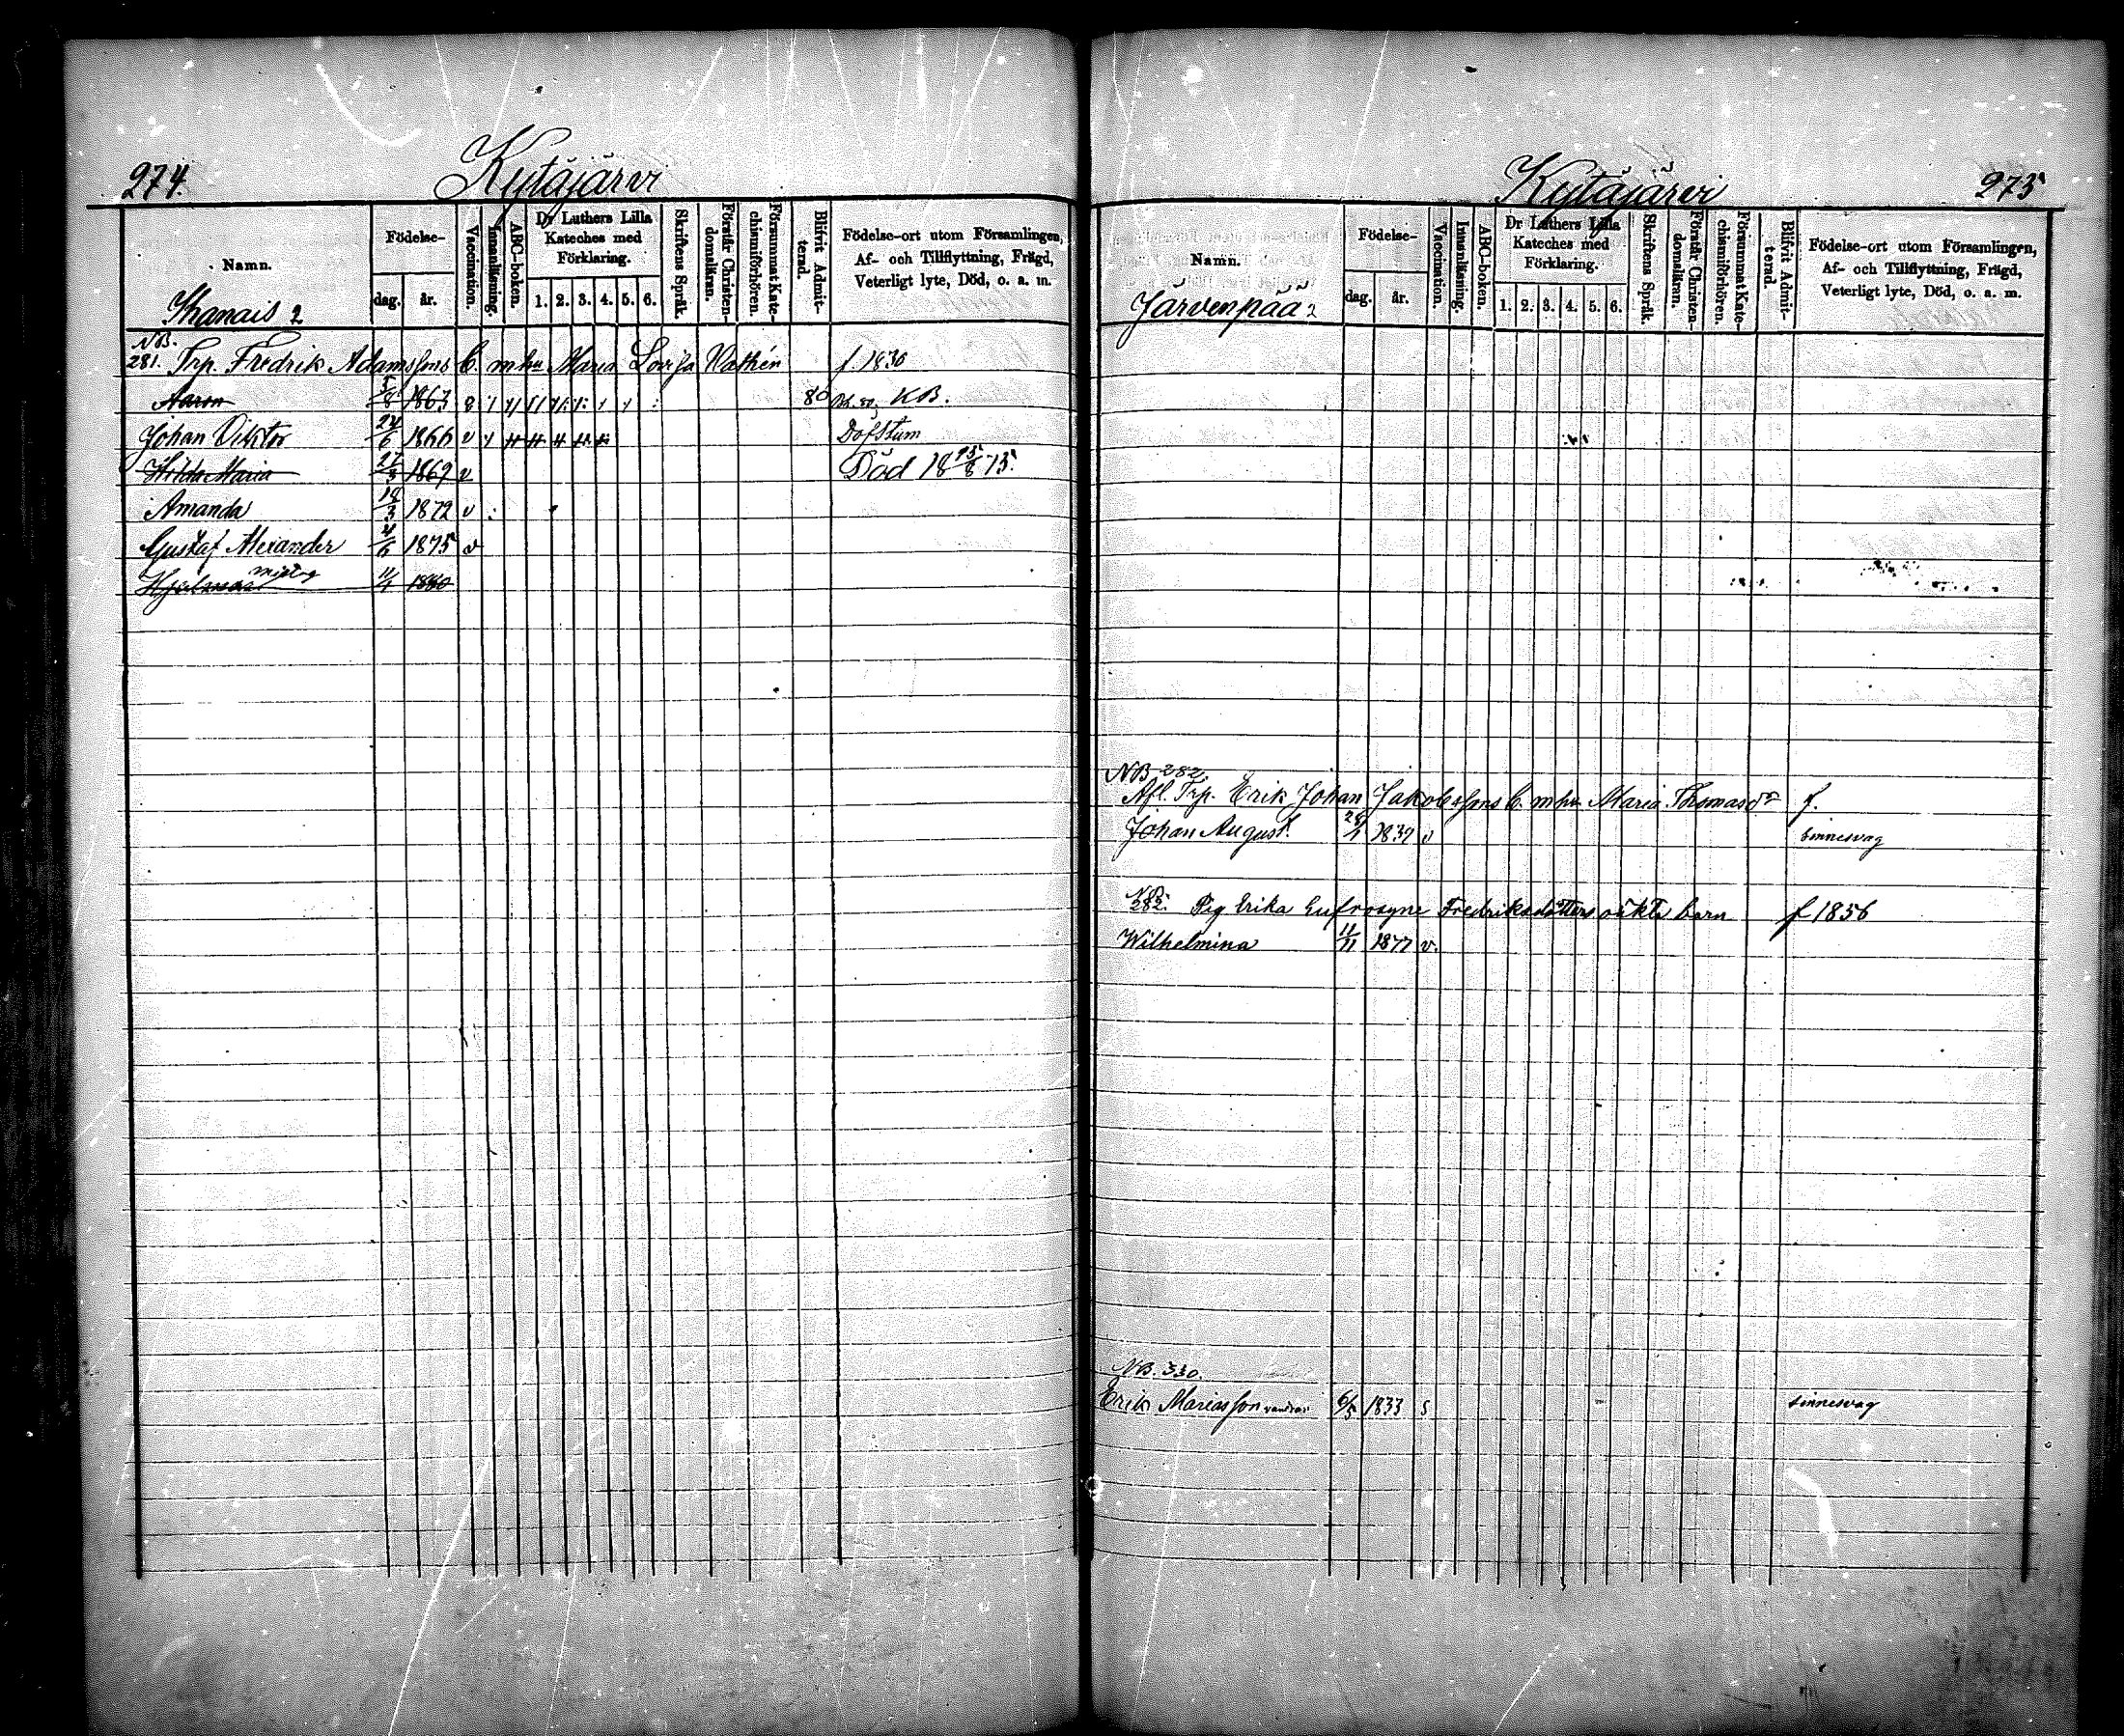 274.
Kytäjärvi
Namn.
Födelse-
dag.
år.
Vaccination.
Innanläsning.
ABC-boken.
Dr Luthers Lilla
Kateches med
Förklaring.
1. 2. 3. 4. 5. 6.
Skriftens Språk.
Förstår Christen-
domsläran.
Försummat Kate-
chismiförhören.
Blifvit Admit-
terad.
Födelse-ort utom Församlingen,
Af- och Tillflyttning, Frägd,
Veterligt lyte, Död, o. a. m.
NB.
281. Trp. Fredrik Adamssons b. m hu Maria Lovisa Wathén f. 1830
Aaron 5/8 1863 80 KB.
Johan Viktor 24/6 1866 v Döfstum
Hilda Maria 27/3 1869 v Död 18 15/8 75.
Amanda 18/3 1872 v
Gustaf Alexander 4/6 1875 v
Hjalmar 11/4 1880
Kytäjärvi
275
Namn.
Järvenpää 2
Födelse-
dag.
år.
Vaccination.
Innanläsning.
ABC-boken.
Dr Luthers Lilla
Kateches med
Förklaring.
1. 2. 3. 4. 5. 6.
Skriftens Språk.
Förstår Christen-
domsläran.
Försummat Kate-
chismiförhören.
Blifvit Admit-
terad.
Födelse-ort utom Församlingen,
Af- och Tillflyttning, Frägd,
Veterligt lyte, Död, o. a. m.
NB 282.
Afl. Trp. Erik Johan Jakobssons b. m hu Maria Thomasdr f.
Johan August 1839 v sinnesvag
NB.
282. Pig Erika Eufrosyne Fredriksdotters oäkta barn f 1856
Wilhelmina 11/11 1877 v.
NB. 330.
Erik Mariasson 6/5 1833 s sinnesvag